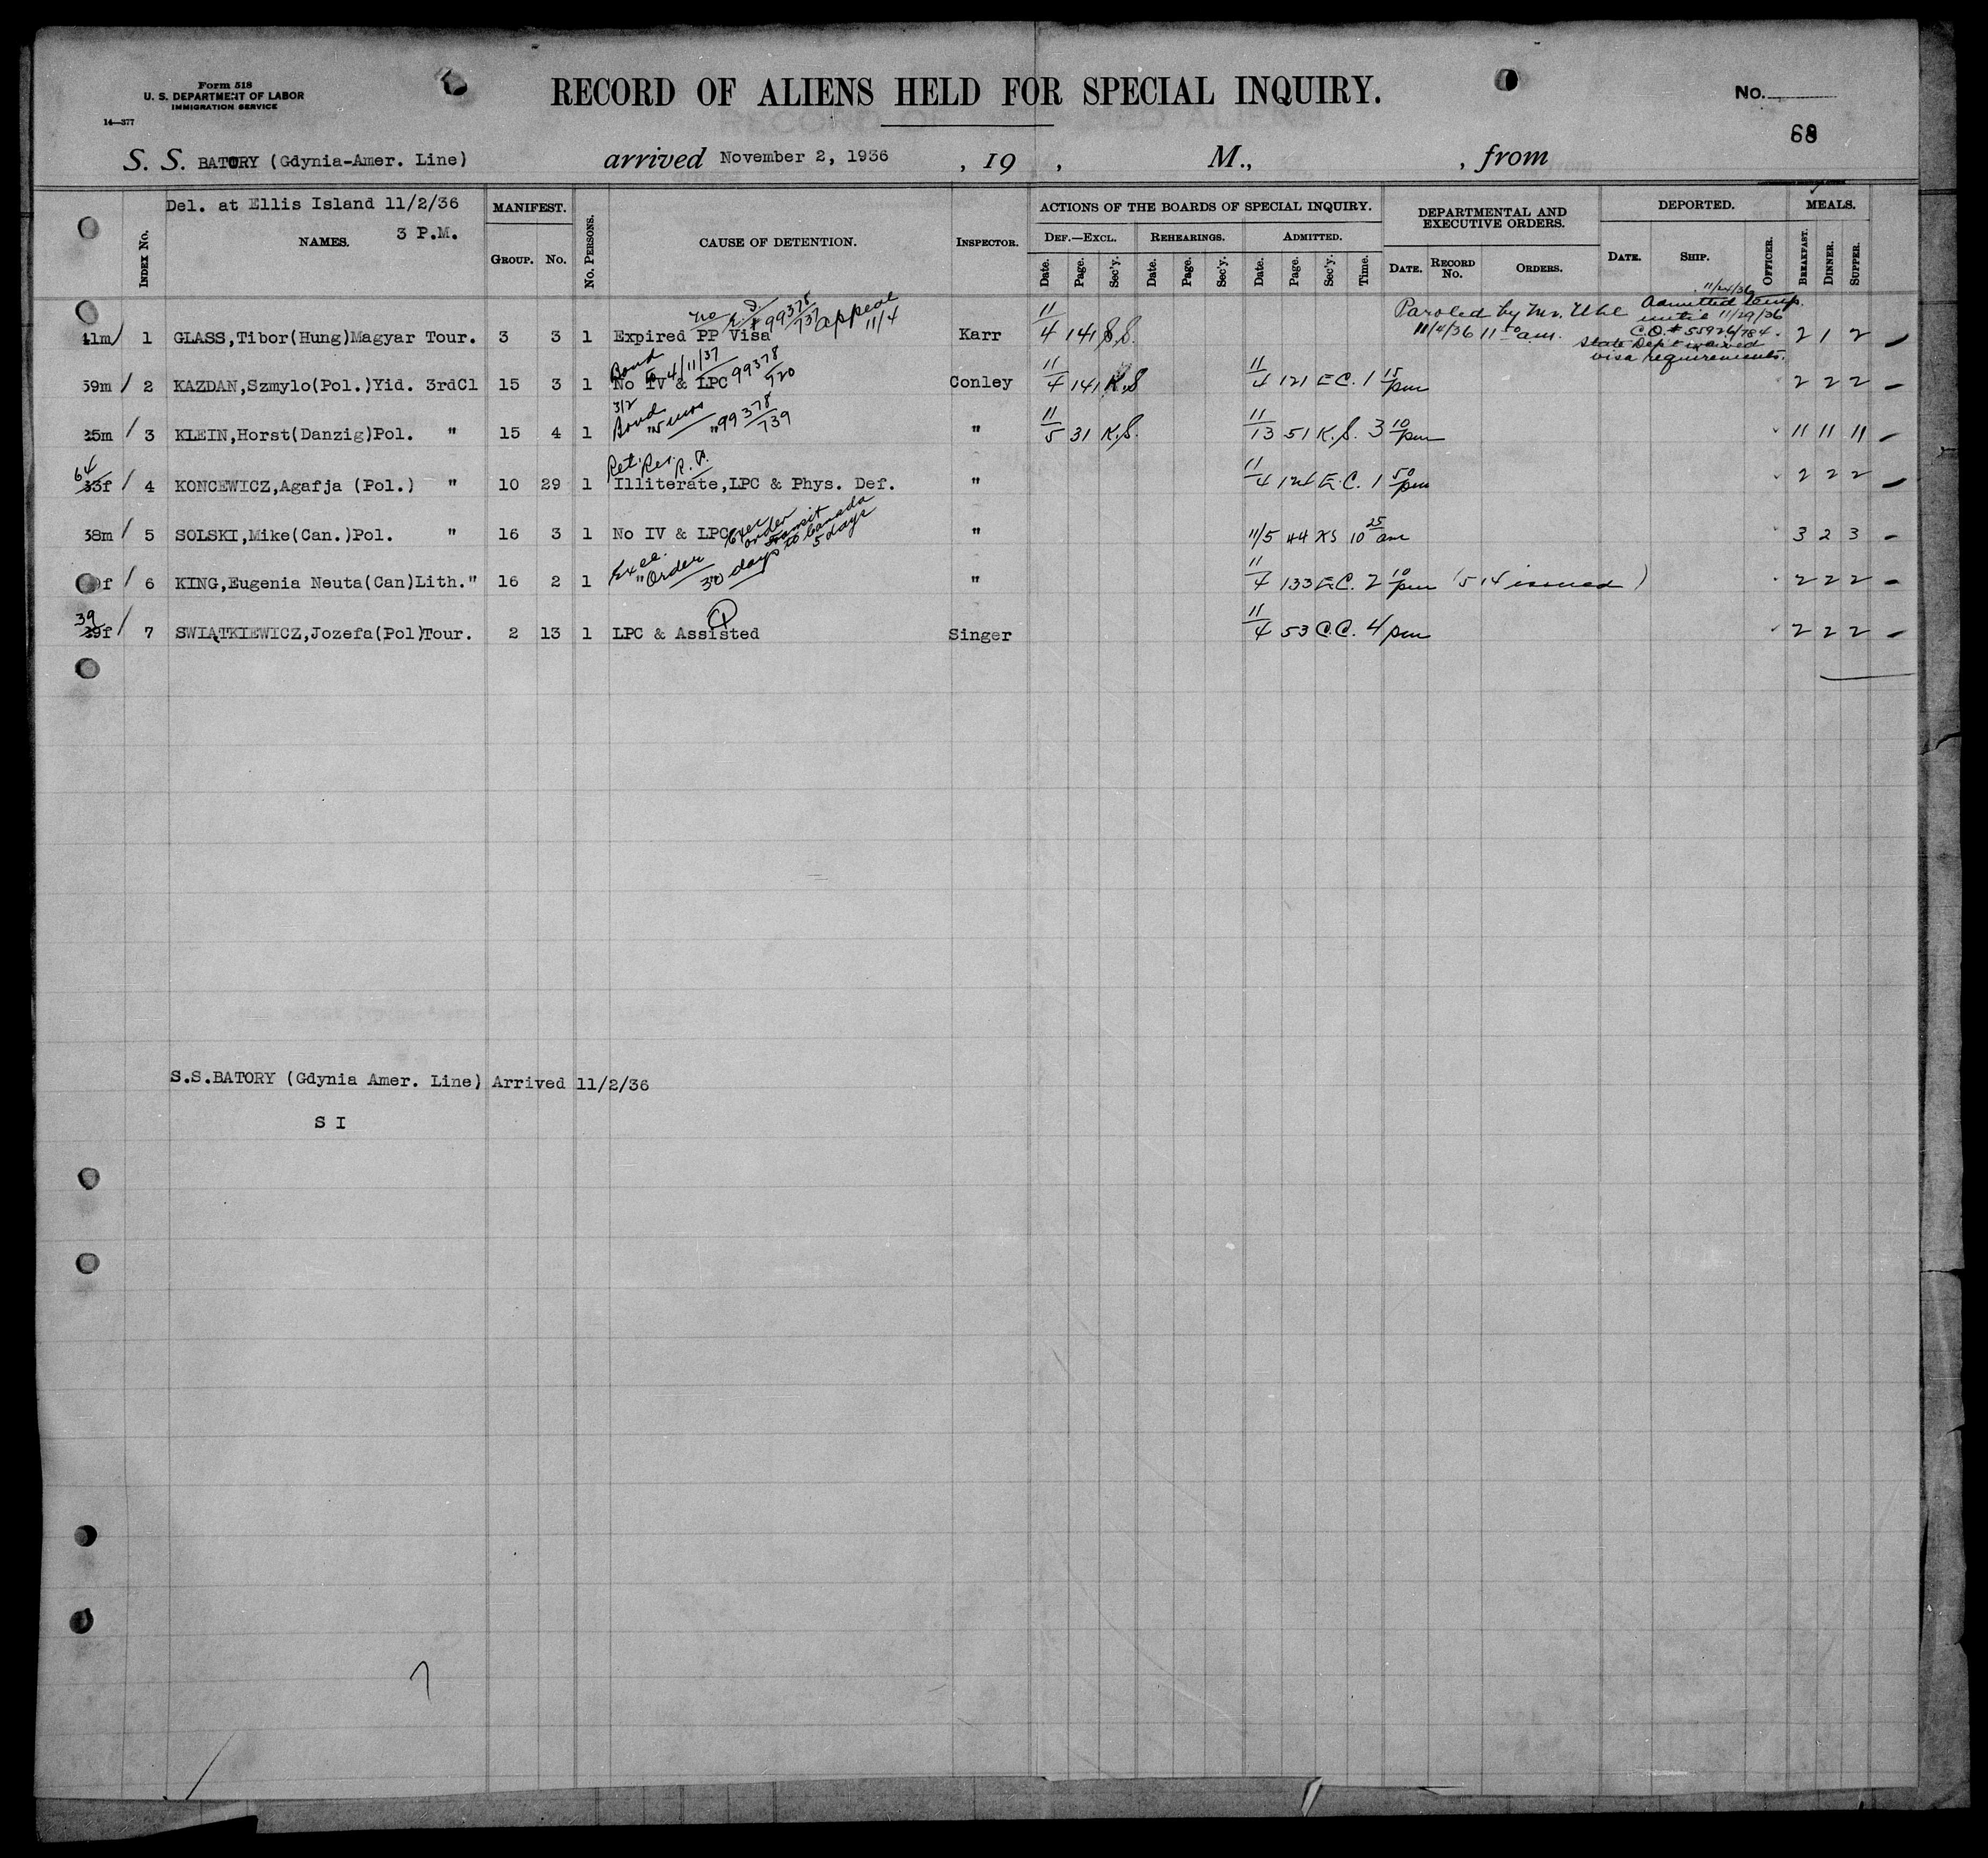 Form 518
U. S. DEPARTMENT OF LABOR
IMMIGRATION SERVICE
14—377
RECORD OF ALIENS HELD FOR SPECIAL INQUIRY.
No.
68
S. S. BATORY (Gdynia-Amer. Line) arrived November 2, 1936 , 19 , M., , from
Del. at Ellis Island 11/2/36
3 P.M.
INDEX No. NAMES. MANIFEST. GROUP. No. No. PERSONS. CAUSE OF DETENTION. INSPECTOR. ACTIONS OF THE BOARDS OF SPECIAL INQUIRY. DEPARTMENTAL AND EXECUTIVE ORDERS. DEPORTED. MEALS.
DEF.—EXCL. REHEARINGS. ADMITTED.
Date. Page. Sec'y. Date. Page. Sec'y. Date. Page. Sec'y. Time. DATE. RECORD No. ORDERS. DATE. SHIP. OFFICER. BREAKFAST. DINNER. SUPPER.
no 99378/737 appeal 11/4
Paroled by Mr. Uhl 11/4/36 11 am.
11/24/36 Admitted temp. until 11/29/36
C.O.# 55926/784.
State Dep't waived visa requirements.
41m/ 1 GLASS,Tibor(Hung)Magyar Tour. 3 3 1 Expired PP Visa Karr 11/4 141 S.S. 2 1 2
Bond to 4/11/37 99378/720
59m/ 2 KAZDAN,Szmylo(Pol.)Yid. 3rdCl 15 3 1 No IV & LPC Conley 11/4 141 K.S 11/4 121 E.C. 1 15 pm 2 2 2
312 Bond 5 mos 99378/739
35m / 3 KLEIN,Horst(Danzig)Pol. " 15 4 1 " " " 11/5 31 K.S. 11/13 51 K.S. 3 10 pm 11 11 11
64
33f / 4 KONCEWICZ,Agafja (Pol.) " 10 29 1 Illiterate,LPC & Phys. Def. " 11/4 124 E.C. 1 50 pm 2 2 2
Ret. Res.
38m / 5 SOLSKI,Mike(Can.)Pol. " 16 3 1 No IV & LPC " 11/5 44 KS 10 25 am 3 2 3
Exec order transit to Canada 5 days
f / 6 KING,Eugenia Neuta(Can)Lith." 16 2 1 " " 11/4 133 E.C. 2 10 pm (514 issued) 2 2 2
Exec. Order 30 days
39
39f / 7 SWIATKIEWICZ,Jozefa(Pol)Tour. 2 13 1 LPC & Assisted Singer 11/4 53 C.C. 4 pm 2 2 2
S.S.BATORY (Gdynia Amer. Line) Arrived 11/2/36
S I
7